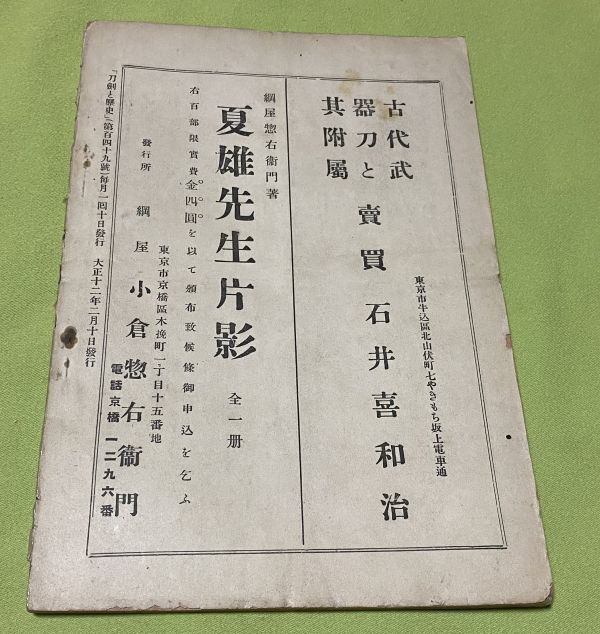 古代武
器刀と
其附屬
賣買
石井喜和治
東京市牛込區北山伏町七やきもち坂上電車通
綱屋惣右衞門著
夏雄先生片影
全一册
右百部限實費金四圓を以て頒布致候條御申込を乞ふ
東京市京橋區木挽町一丁目十五番地
發行所
綱屋
小倉惣右衞門
電話京橋一二九六番
『刀劍と歷史』第百四十九號(毎月一回十日發行
大正十二年二月十日發行